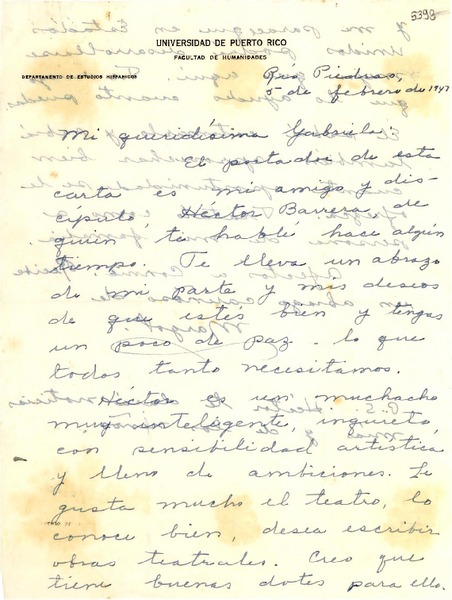 5398
UNIVERSIDAD DE PUERTO RICO
FACULTAD DE HUMANIDADES
DEPARTAMENTO DE ESTUDIOS HISPANICOS
Río Piedras,
5 de febrero de 1947
Mi queridísima Gabriela:
El portador de esta
carta es mi amigo y dis-
cípulo, Héctor Barrera, de
quien te hablé hace algún
tiempo. Te lleva un abrazo
de mi parte y mis deseos
de que estés bien y tengas
un poco de paz - lo que
todos tanto necesitamos.
Héctor es un muchacho
muy inteligente, inquieto,
con sensibilidad artística
y lleno de ambiciones. Le
gusta mucho el teatro, lo
conoce bien, desea escribir
obras teatrales. Creo que
tiene buenas dotes para ello.